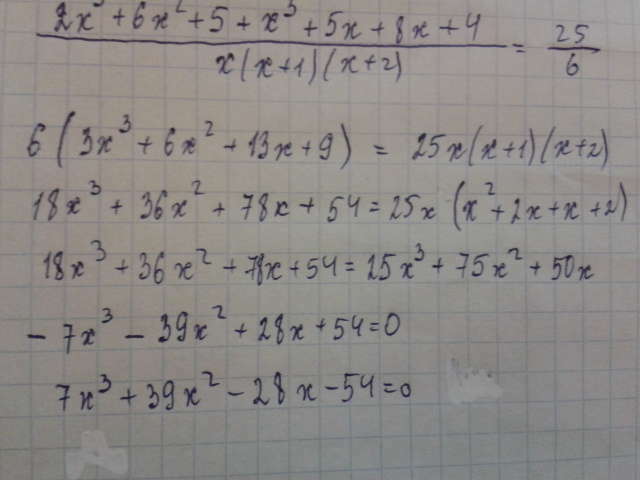 (2x³ + 6x² + 5 + x³ + 5x + 8x + 4) / (x(x+1)(x+2)) = 25/6
6(3x³ + 6x² + 13x + 9) = 25x(x+1)(x+2)
18x³ + 36x² + 78x + 54 = 25x(x² + 2x + x + 2)
18x³ + 36x² + 78x + 54 = 25x³ + 75x² + 50x
- 7x³ - 39x² + 28x + 54 = 0
7x³ + 39x² - 28x - 54 = 0